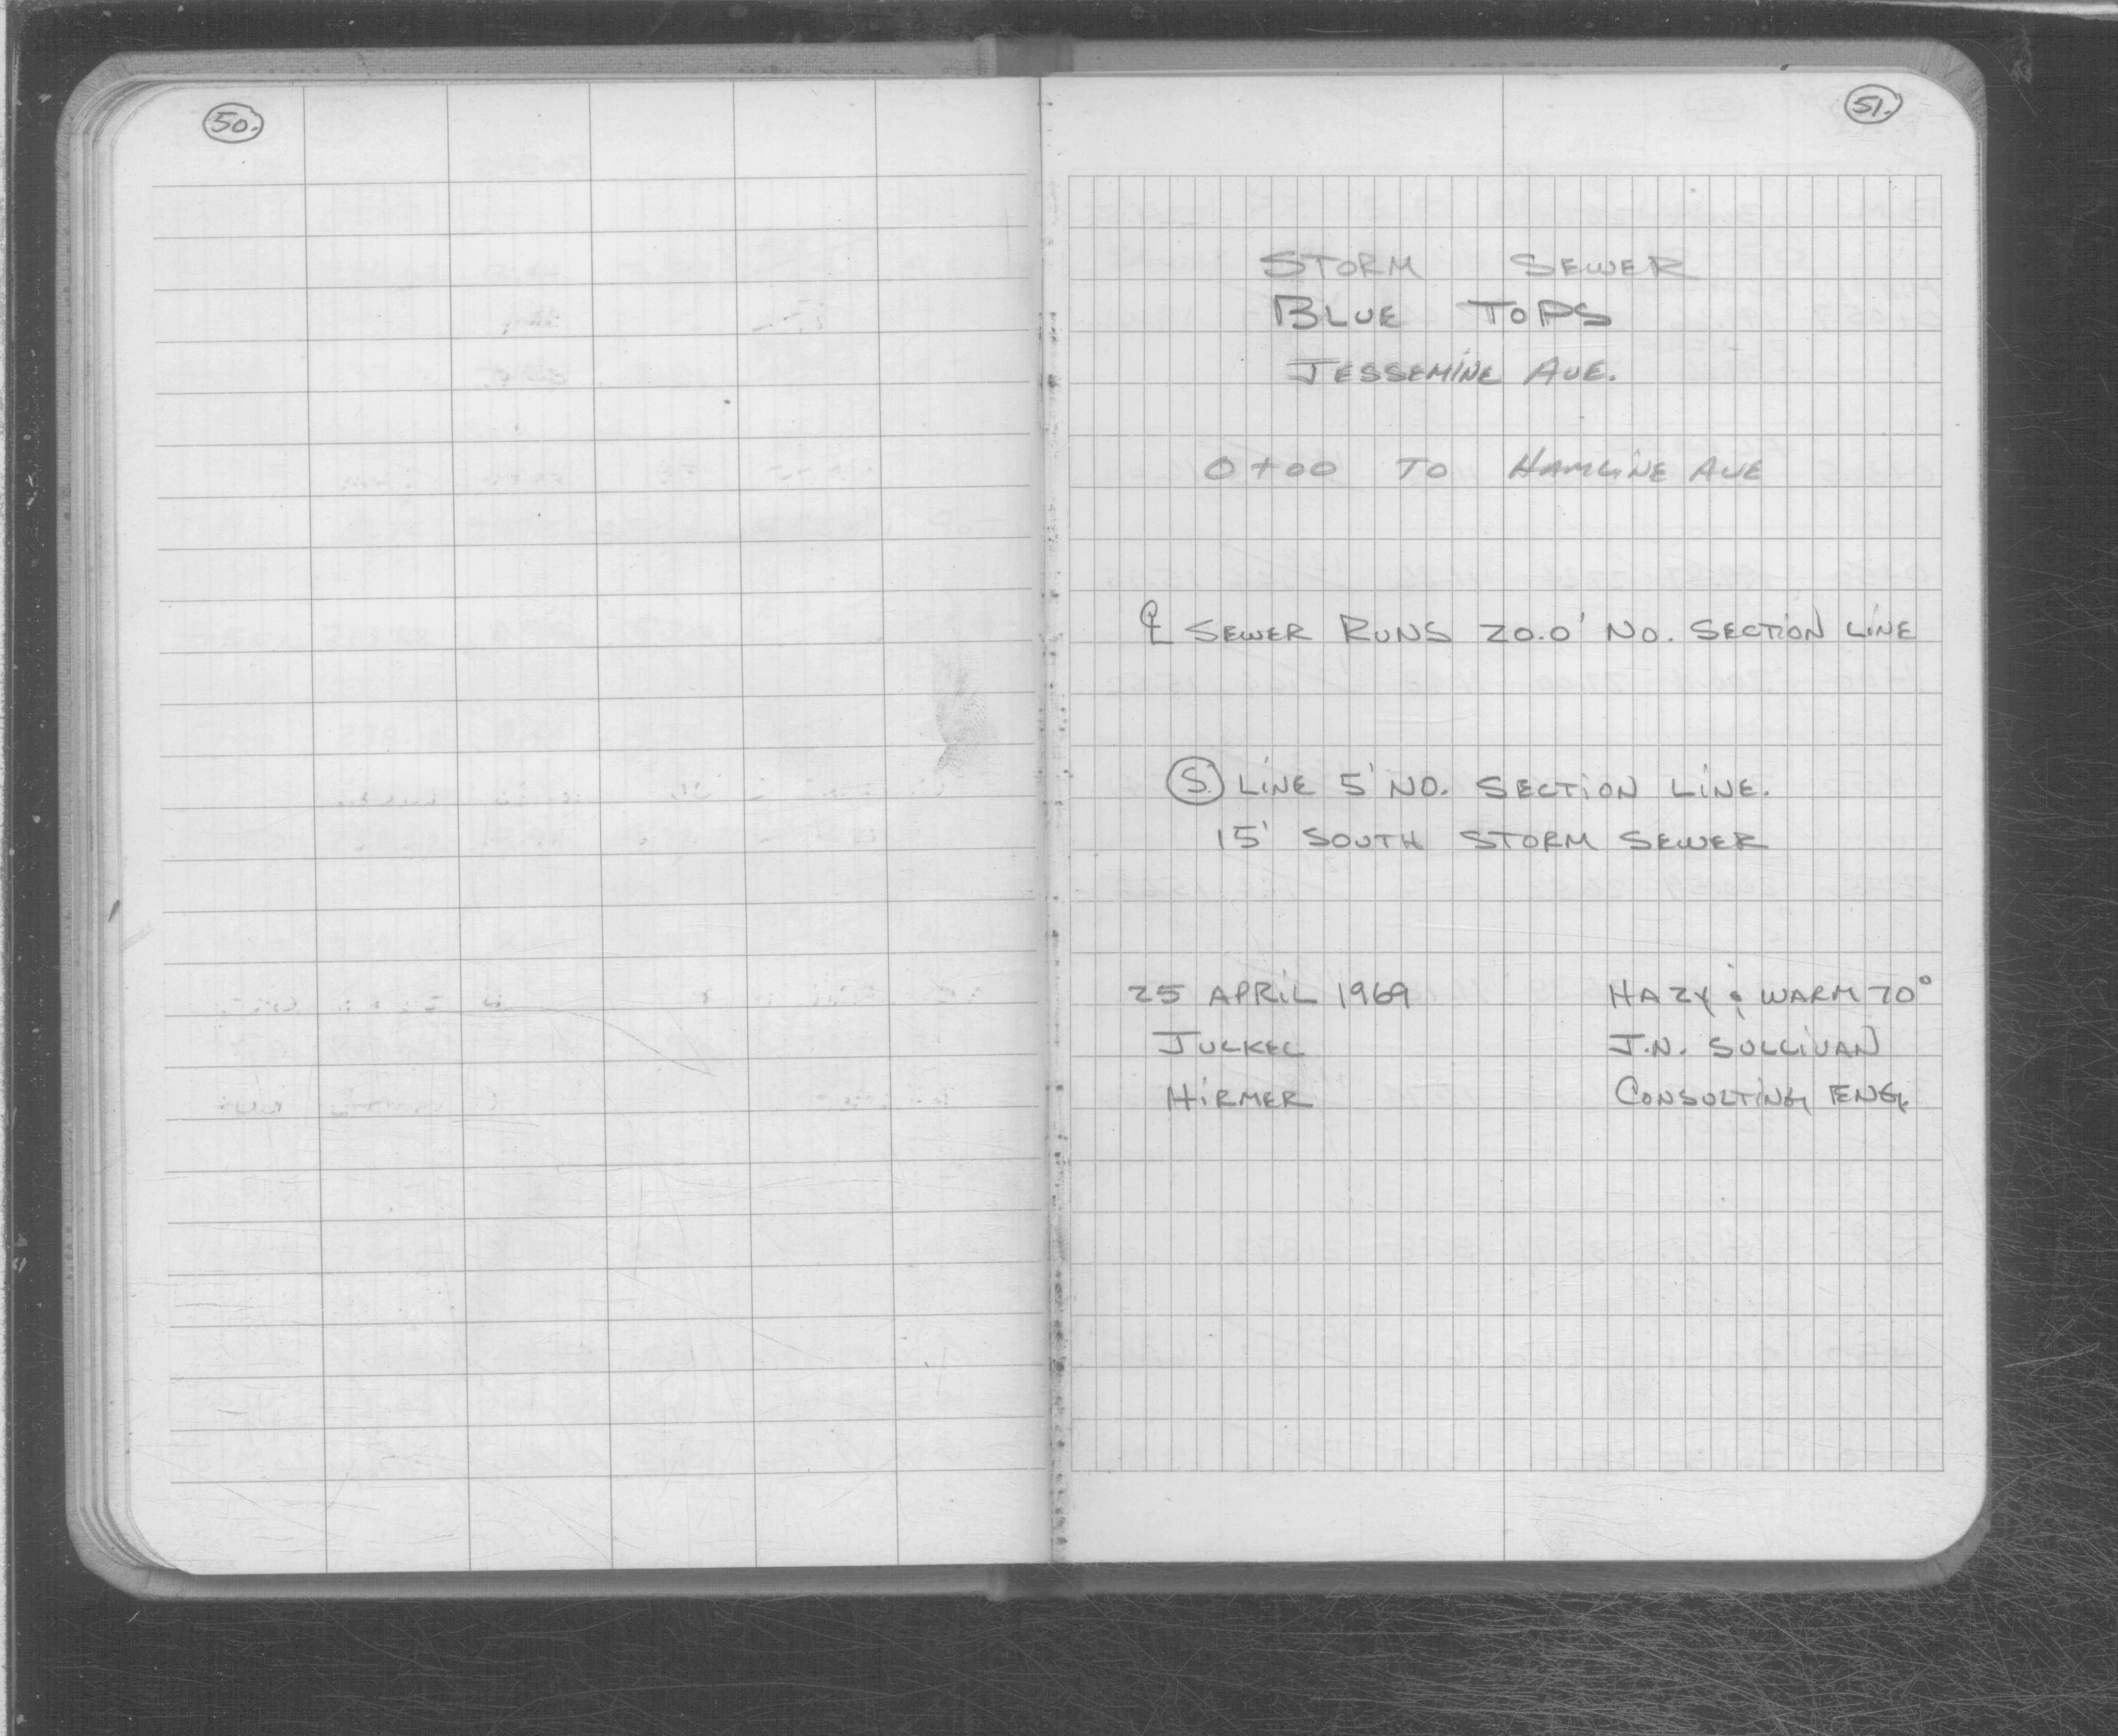 50.
51.
STORM SEWER
BLUE TOPS
JESSEMINE AVE.
0+00 TO HAMLINE AVE
℄ SEWER RUNS 20.0' NO. SECTION LINE
Ⓢ LINE 5' NO. SECTION LINE.
15' SOUTH STORM SEWER
25 APRIL 1969 HAZY & WARM 70°
JULKEL J.N. SULLIVAN
HIRMER CONSULTING ENG